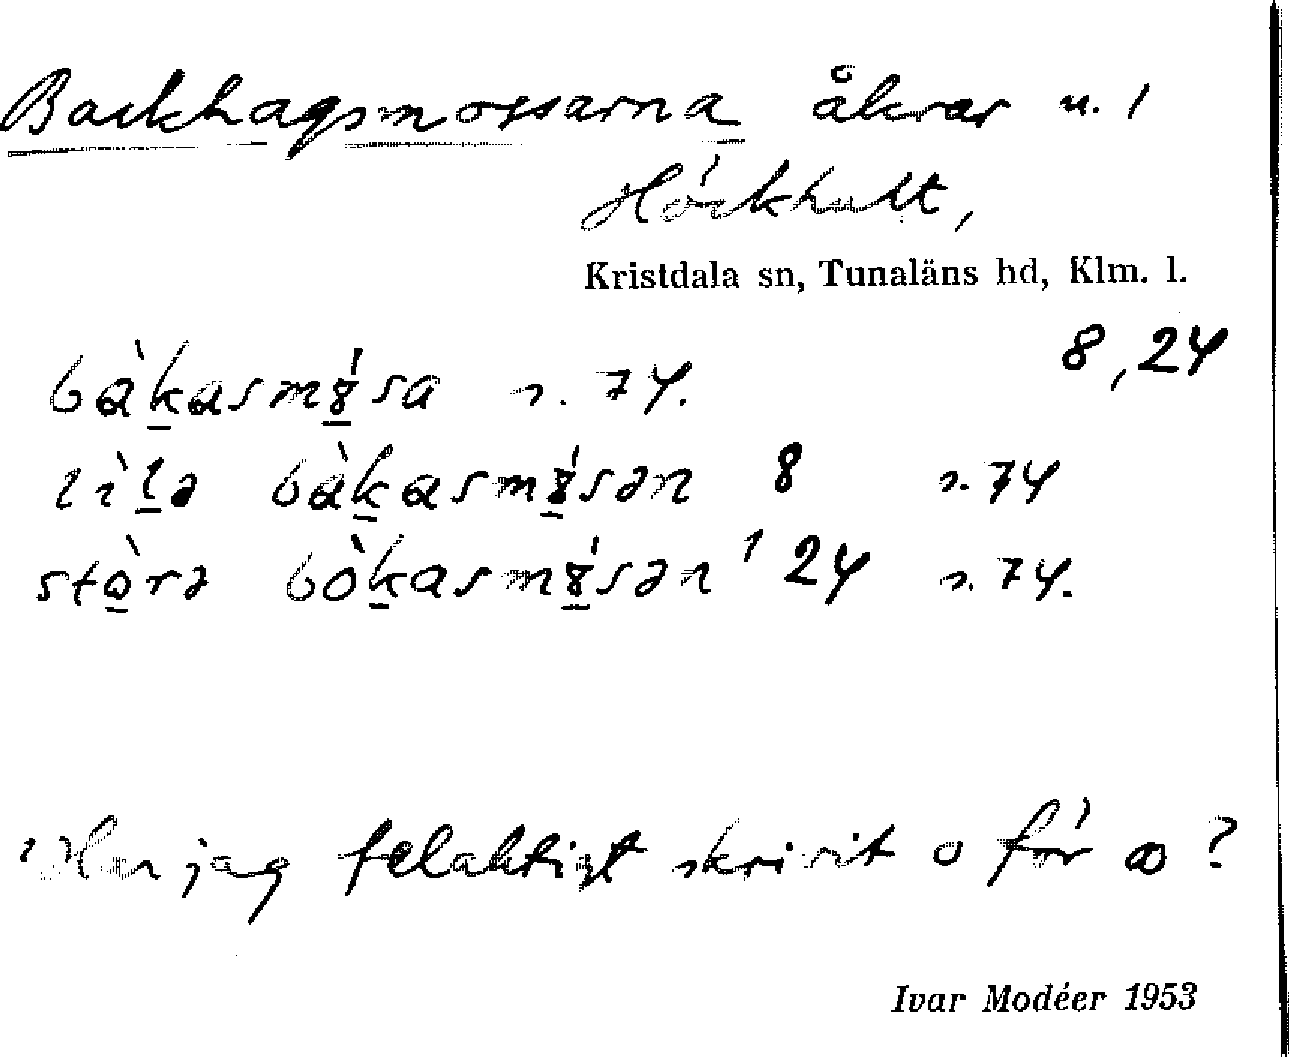 Backhagsmossarna åkrar u. 1
Höckhult,
Kristdala sn, Tunaläns hd, Klm. l.
8, 24
bàk̲asmȣ̲́sa s. 74.
lìl̲ə bàk̲asmȣ̲́sən 8 s. 74
stò̲rə bòk̲asmȣ̲́sən ¹ 24 s. 74.
¹ Har jag felaktigt skrivit o för ꝏ ?
Ivar Modéer 1953